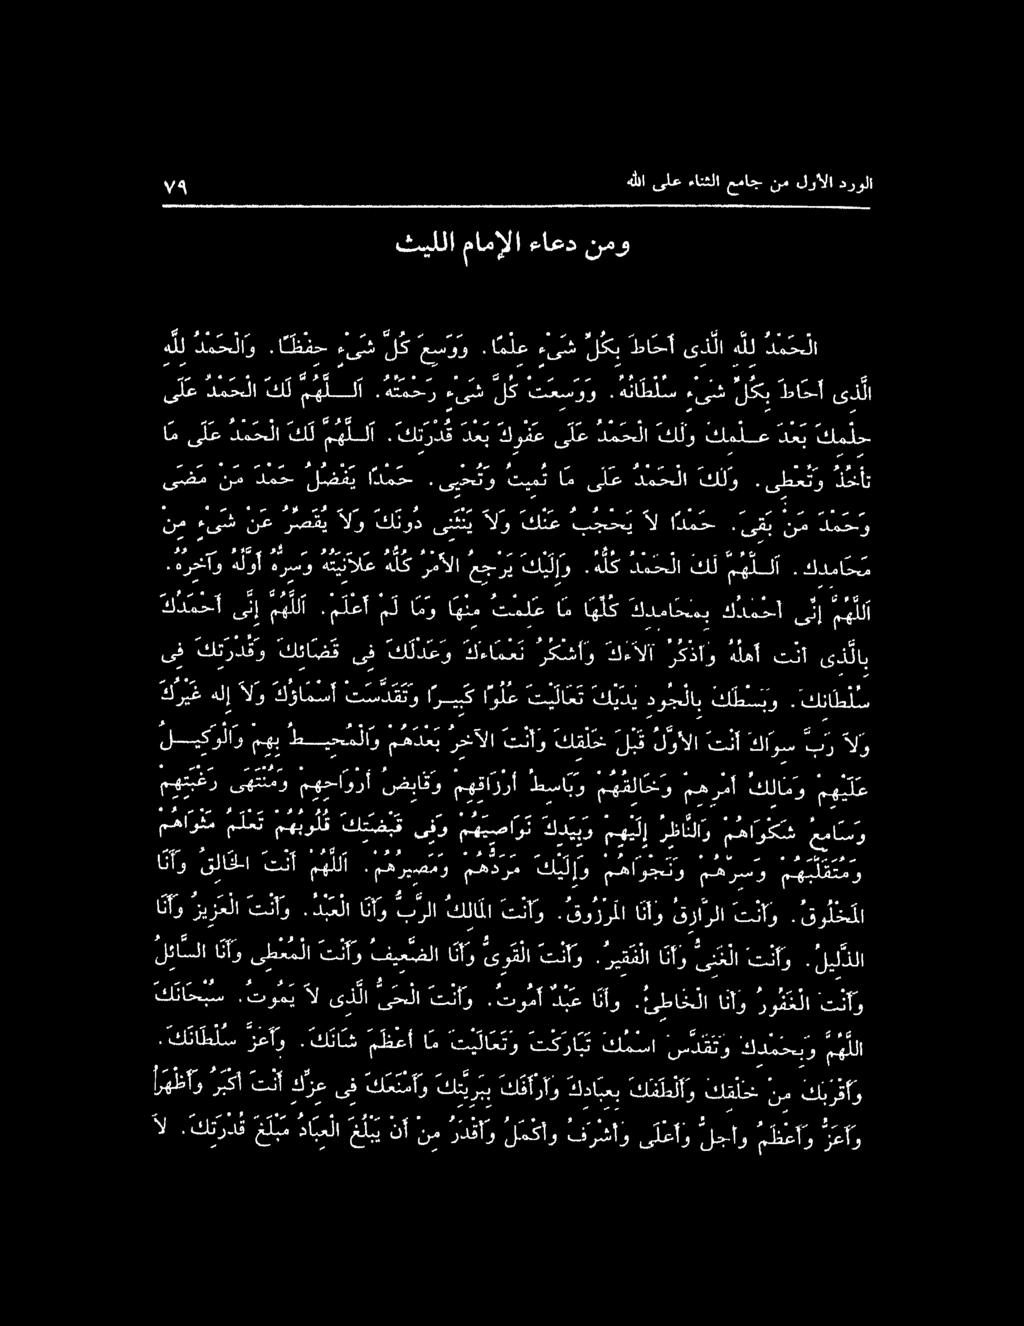 الورد الأول من جامع الثناء على الله ٧٩
ومن دعاء الإمام الليث
الْحَمْدُ لِلَّهِ الَّذِى أَحَاطَ بِكُلِّ شَىْءٍ عِلْمًا. وَوَسِعَ كُلَّ شَىْءٍ حِفْظًا. وَالْحَمْدُ لِلَّهِ
الَّذِى أَحَاطَ بِكُلِّ شَىْءٍ سُلْطَانُهُ. وَوَسِعَتْ كُلَّ شَىْءٍ رَحْمَتُهُ. اَللَّهُمَّ لَكَ الْحَمْدُ عَلَى
حِلْمِكَ بَعْدَ عِلْمِكَ وَلَكَ الْحَمْدُ عَلَى عَفْوِكَ بَعْدَ قُدْرَتِكَ. اَللَّهُمَّ لَكَ الْحَمْدُ عَلَى مَا
تَأْخُذُ وَتُعْطِى. وَلَكَ الْحَمْدُ عَلَى مَا تُمِيتُ وَتُحْيِى. حَمْدًا يَفْضُلُ حَمْدَ مَنْ مَضَى
وَحَمْدَ مَنْ بَقِىَ. حَمْدًا لاَ يَحْجُبُ عَنْكَ وَلاَ يَنْثَنِى دُونَكَ وَلاَ يُقَصِّرُ عَنْ شَىْءٍ مِنْ
مَحَامِدِكَ. اَللَّهُمَّ لَكَ الْحَمْدُ كُلُّهُ. وَإِلَيْكَ يَرْجِعُ الأَمْرُ كُلُّهُ عَلاَنِيَتُهُ وَسِرُّهُ أَوَّلُهُ وَآخِرُهُ.
اَللَّهُمَّ إِنِّى أَحْمَدُكَ بِمَحَامِدِكَ كُلِّهَا مَا عَلِمْتُ مِنْهَا وَمَا لَمْ أَعْلَمْ. اَللَّهُمَّ إِنِّى أَحْمَدُكَ
بِالَّذِى أَنْتَ أَهْلُهُ وَأَذْكُرُ آلاَءَكَ وَأَشْكُرُ نَعْمَاءَكَ وَعَدْلَكَ فِى قَضَائِكَ وَقُدْرَتِكَ فِى
سُلْطَانِكَ. وَبَسْطَكَ بِالْجُودِ يَدَيْكَ تَعَالَيْتَ عُلُوًّا كَبِيرًا وَتَقَدَّسَتْ أَسْمَاؤُكَ وَلاَ إِلَهَ غَيْرُكَ
وَلاَ رَبَّ سِوَاكَ أَنْتَ الأَوَّلُ قَبْلَ خَلْقِكَ وَأَنْتَ الآخِرُ بَعْدَهُمْ وَالْمُحِيطُ بِهِمْ وَالْوَكِيلُ
عَلَيْهِمْ وَمَالِكُ أَمْرِهِمْ وَخَالِقُهُمْ وَبَاسِطُ أَرْزَاقِهِمْ وَقَابِضُ أَرْوَاحِهِمْ وَمُنْتَهَى رَغْبَتِهِمْ
وَسَامِعُ شَكْوَاهُمْ وَالنَّاظِرُ إِلَيْهِمْ وَبِيَدِكَ نَوَاصِيهُمْ وَفِى قَبْضَتِكَ قُلُوبُهُمْ تَعْلَمُ مَثْوَاهُمْ
وَمُتَقَلَّبَهُمْ وَسِرَّهُمْ وَنَجْوَاهُمْ وَإِلَيْكَ مَرَدُّهُمْ وَمَصِيرُهُمْ. اَللَّهُمَّ أَنْتَ الخَالِقُ وَأَنَا
المَخْلُوقُ. وَأَنْتَ الرَّازِقُ وَأَنَا المَرْزُوقُ. وَأَنْتَ المَالِكُ الرَّبُّ وَأَنَا الْعَبْدُ. وَأَنْتَ الْعَزِيزُ وَأَنَا
الذَّلِيلُ. وَأَنْتَ الْغَنِىُّ وَأَنَا الْفَقِيرُ. وَأَنْتَ الْقَوِىُّ وَأَنَا الضَّعِيفُ وَأَنْتَ الْمُعْطِى وَأَنَا السَّائِلُ
وَأَنْتَ الْغَفُورُ وَأَنَا الْخَاطِئُ. وَأَنَا عَبْدٌ أَمُوتُ. وَأَنْتَ الْحَىُّ الَّذِى لاَ يَمُوتُ. سُبْحَانَكَ
اللَّهُمَّ وَبِحَمْدِكَ وَتَقَدَّسَ اسْمُكَ تَبَارَكْتَ وَتَعَالَيْتَ مَا أَعْظَمَ شَانَكَ. وَأَعَزَّ سُلْطَانَكَ.
وَأَقْرَبَكَ مِنْ خَلْقِكَ وَأَلْطَفَكَ بِعِبَادِكَ وَأَرْأَفَكَ بِبَرِيَّتِكَ وَأَمْنَعَكَ فِى عِزِّكَ أَنْتَ أَكْبَرُ وَأَظْهَرُ
وَأَعَزُّ وَأَعْظَمُ وَأَجَلُّ وَأَعْلَى وَأَشْرَفُ وَأَكْمَلُ وَأَقْدَرُ مِنْ أَنْ يَبْلُغَ الْعِبَادُ مَبْلَغَ قُدْرَتِكَ. لاَ